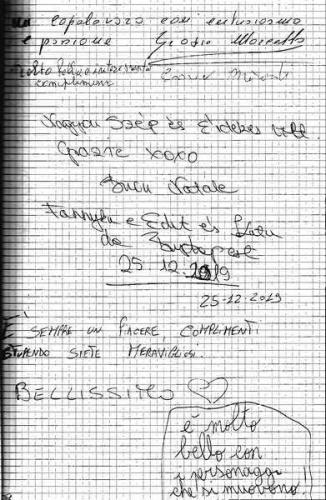 un capolavoro con entusiasmo
e passione Grazie
Molto bello e interessante
complimenti
Nagyon Szép és Érdekes volt
Grazie xoxo
Buon Natale
e Edit és
da Budapest
25.12.2019
25-12-2019
E' SEMPRE UN PIACERE, COMPLIMENTI
STUPENDO SIETE MERAVIGLIOSI.
BELLISSIMO
è molto
bello con
i personaggi
che si muovono!!